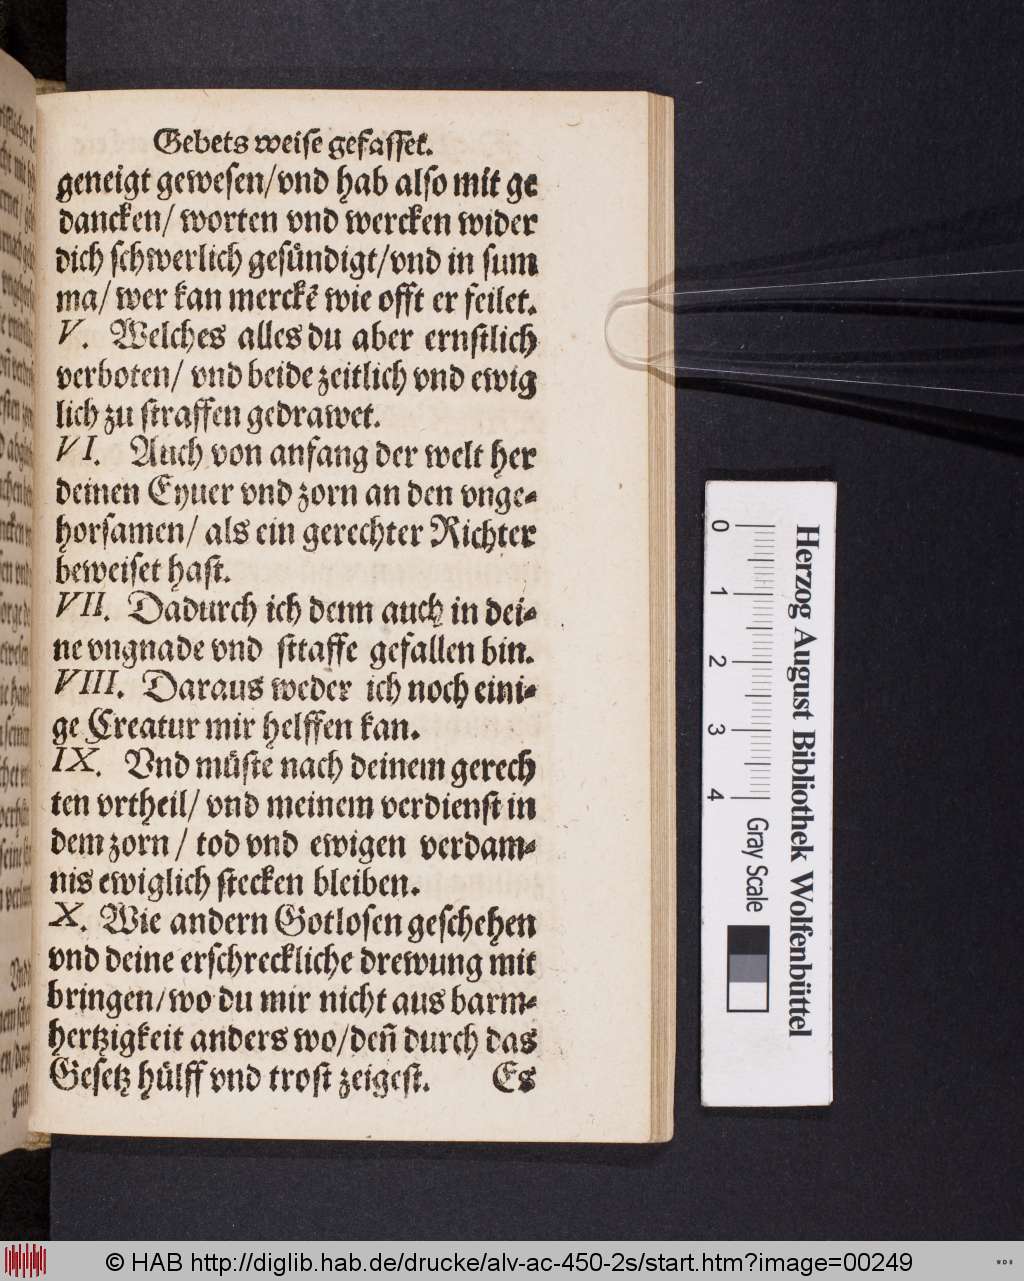 Gebets weise gefasset.
geneigt gewesen/vnd hab also mit ge
dancken/ worten vnd wercken wider
dich schwerlich gesündigt/vnd in sum
ma/ wer kan merckē wie offt er feilet.
V. Welches alles du aber ernstlich
verboten/ vnd beide zeitlich vnd ewig
lich zu straffen gedrawet.
VI. Auch von anfang der welt her
deinen Eyuer vnd zorn an den vnge-
horsamen/ als ein gerechter Richter
beweiset hast.
VII. Dadurch ich denn auch in dei-
ne vngnade vnd sttaffe gefallen bin.
VIII. Daraus weder ich noch eini-
ge Creatur mir helffen kan.
IX. Vnd müste nach deinem gerech
ten vrtheil/ vnd meinem verdienst in
dem zorn / tod vnd ewigen verdam-
nis ewiglich stecken bleiben.
X. Wie andern Gotlosen geschehen
vnd deine erschreckliche drewung mit
bringen/wo du mir nicht aus barm-
hertzigkeit anders wo/deñ durch das
Gesetz hülff vnd trost zeigest. Es
0 1 2 3 4
Gray Scale
Herzog August Bibliothek Wolfenbüttel
© HAB http://diglib.hab.de/drucke/alv-ac-450-2s/start.htm?image=00249